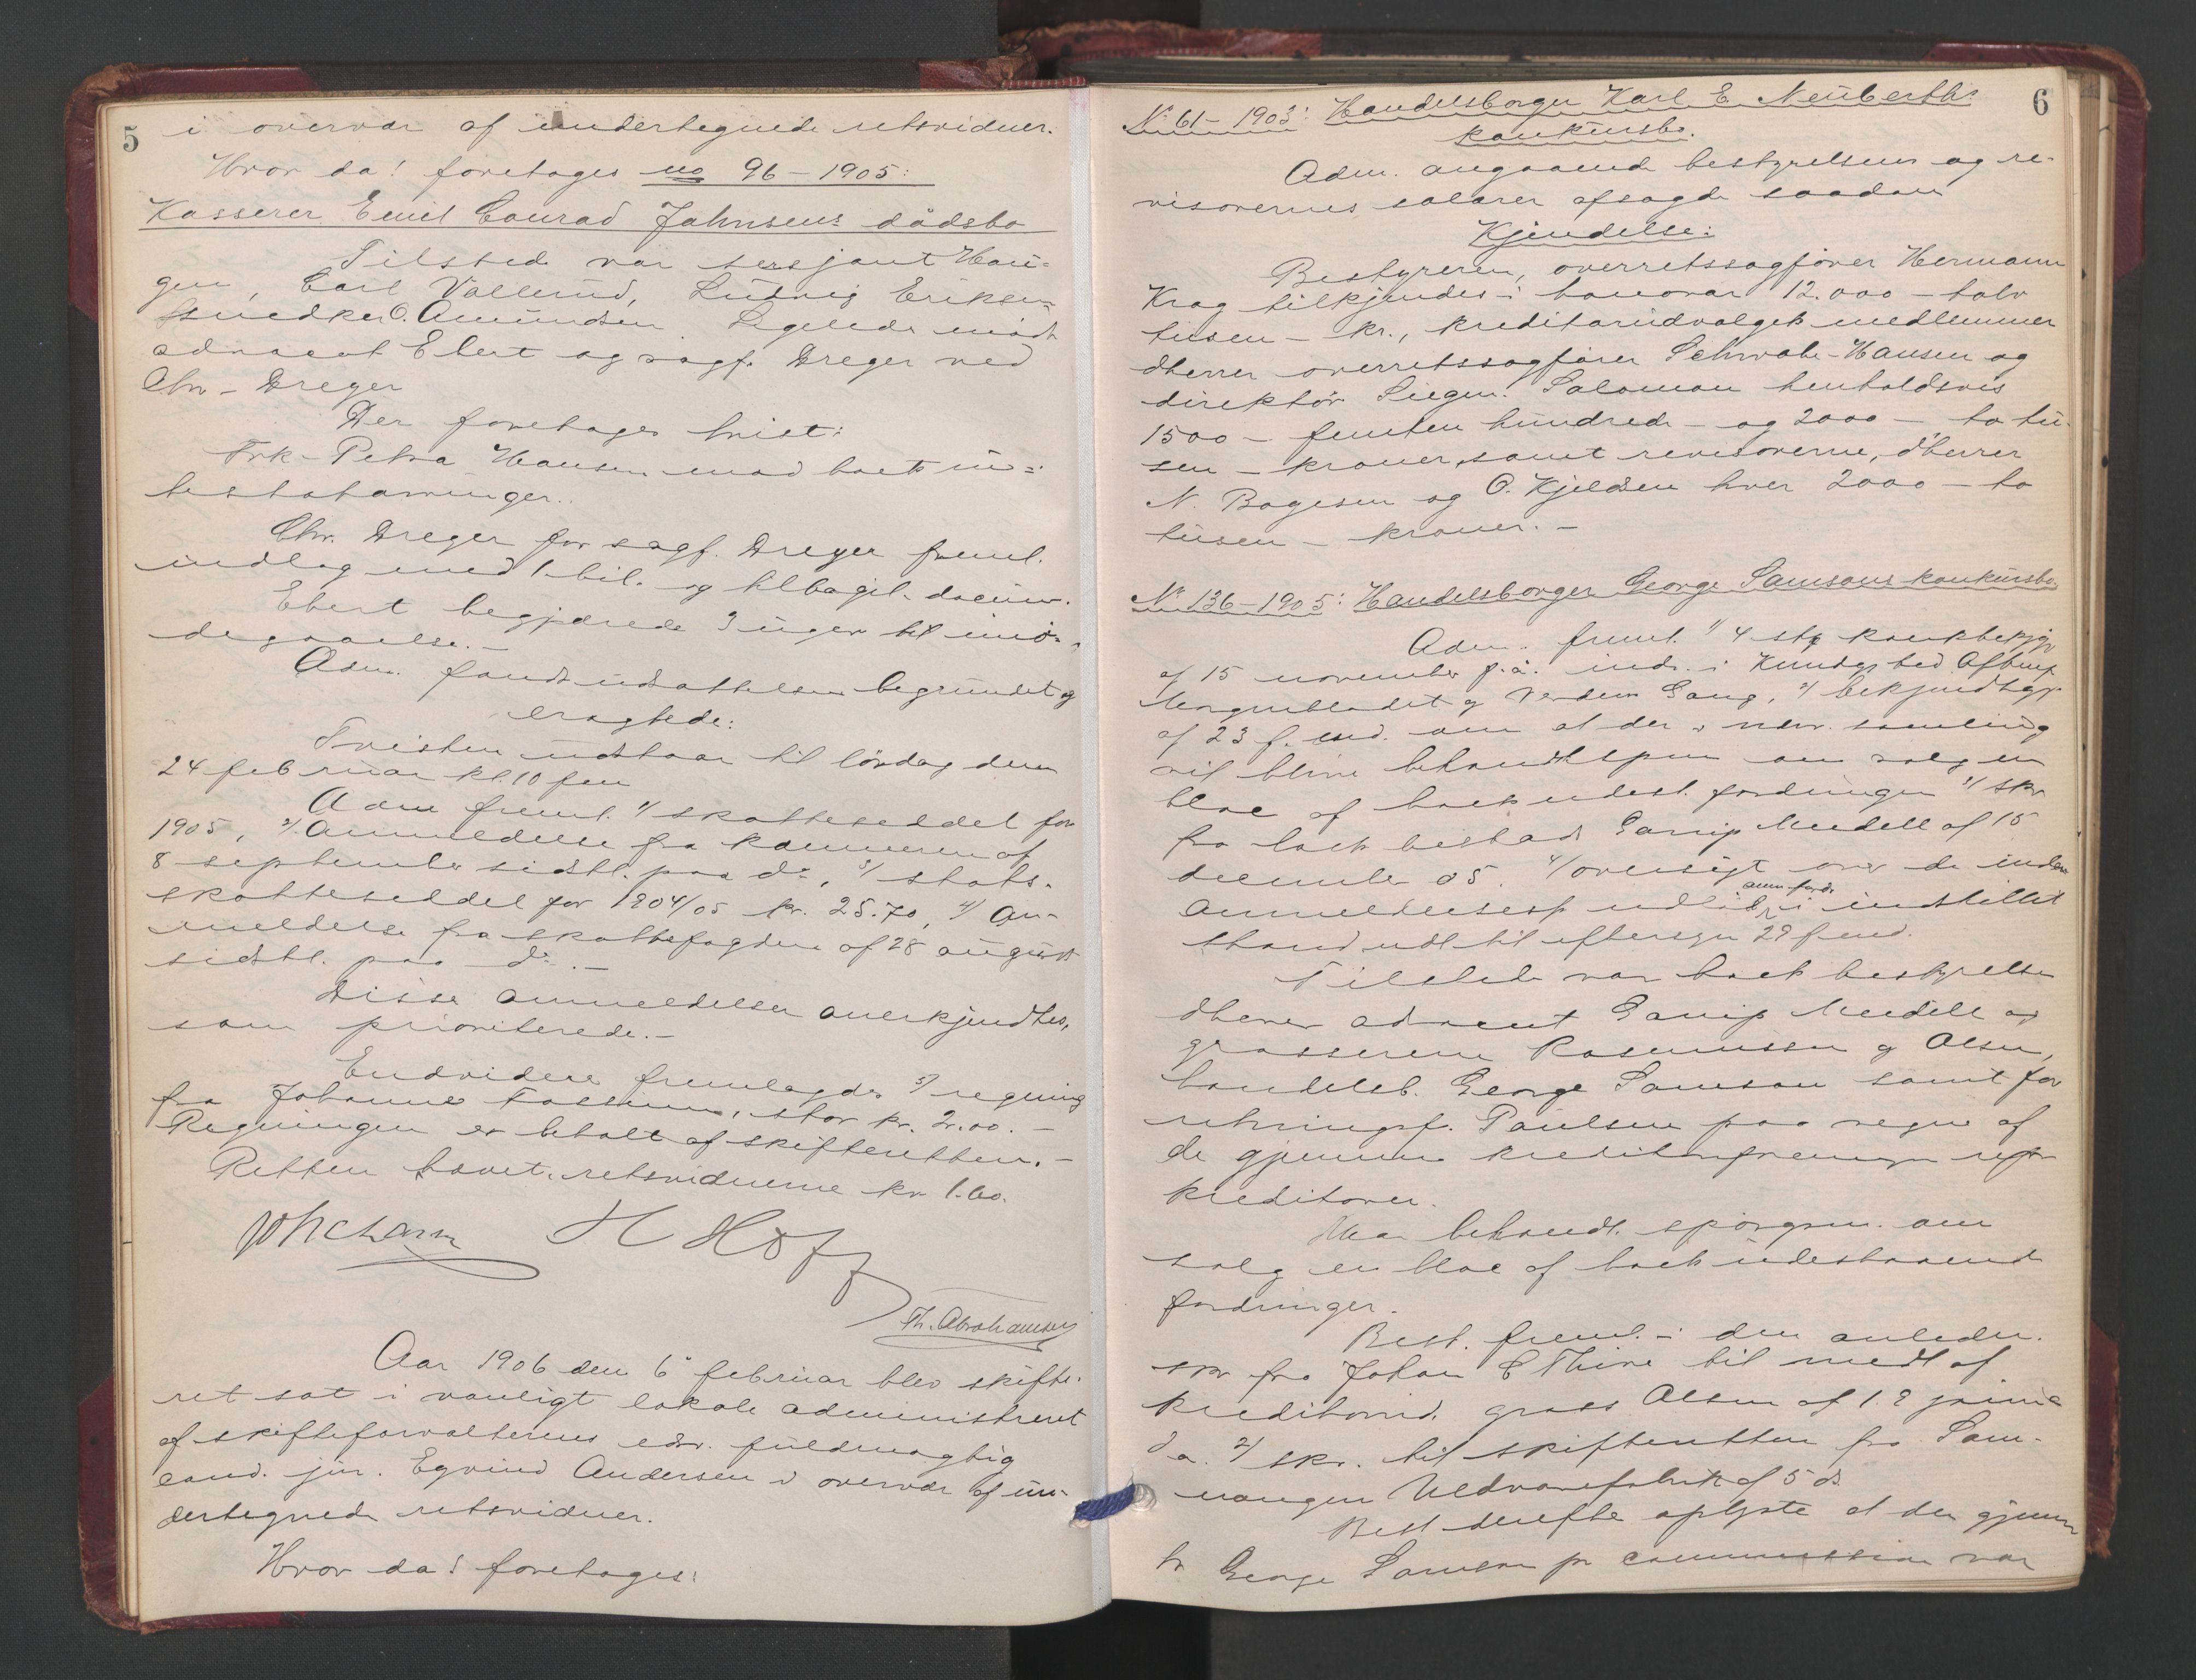 5
i overvær af undertegnede retsvidner.
Hvor da! foretages no 96 – 1905:
Kasserer Emil Conrad Jahnsens dødsbo
Tilstede var sersjant Hau-
gen, Carl Vallerud, Ludvig Eriksen
snedker O. Amundsen Ligeledes mødte
advocat Ebert og sagf. Dreyer ved
Chr. Dreyer
Der foretages tvist:
Frk. Petra Hansen mod boets in-
testatarvinger.
Chr. Dreyer for sagf. Dreyer freml.
indlæg med 1 bil. og tilbagil. docum.
Ebert begjærede 3 uger til imø-
degaaelse. –
Adm. fandt udsættelsen begrundet og
eragtede:
Tvisten udstaar til lørdag den
24 februar kl. 10 fm
Adm freml. 1/ skatteseddel for
1905, 2/ Anmeldelse fra kæmneren af
8 september sidstl. paa do, 3/ stats-
skatteseddel for 1904/05 kr. 25.70, 4/ An-
meldelse fra skattefogden af 28 august
sidstl. paa do. –
Disse anmeldelser anerkjendtes
som prioriterede. –
Endvidere fremlagdes 5/ regning
fra Johannes Fossum, stor kr. 2.00. –
Regningen er betalt af skifteretten. –
Retten hævet. retsvidnerne kr 1.60.
H Hoff
Th. Abrahamsen
Aar 1906 den 6te februar blev skifte-
ret sat i vanligt lokale administreret
af skifteforvalterens edsv. fuldmægtig
cand. jur. Eyvind Andersen i overvær af un-
dertegnede retsvidner.
Hvor da! foretages:
6
No 61 – 1903: Handelsborger Karl E. Neuberths
konkursbo.
Adm. angaaende bestyrelsens og re-
visorernes salærer afsagde saadan
Kjendelse:
Bestyreren, overretssagfører Hermann
Krag tilkjendes i honorar 12.000 – tolv
tusen – kr., kreditorudvalgets medlemmer
dherrer overretssagfører Schwabe-Hansen og
direktør Siegm. Salomon henholdsvis
1500 – femten hundrede – og 2000 – to tu-
sen – kroner, samt revisorerne, dherrer
N. Bogesen og O. Kjeldsen hver 2000 – to
tusen – kroner. –
No 136 – 1905: Handelsborger George Samsons konkursbo
Adm. freml. 1/ 4 stk konkbekjg
af 15 november f.å. indr. i Kundgj tid Aftenp
Morgenbladet og Verdens Gang, 2/ bekjendtgj.
af 23 f. md. om at der i nærv. samling
vil blive behandlet spm om salg en
bloc af boets udest. fordringer 3/ skr
fra boets bestad Garup Meidell af 15
december 05. 4/ oversigt over de inden
Anmeldelsesf udløb anm. fordr. i indstillet
stand udl til eftersyn 29 f md.
Tilstede var boets bestyrelse
dherrer advocat Garup Meidell og
grossererne Rasmussen og Olsen,
handelsb. George Samson samt for
retningsf. Paulsen paa vegne af
de gjennem kreditorforeningen repr
kreditorer.
Man behandl. spørgsm. om
salg en bloc af boets udestaaende
fordringer.
Best. freml. i den anledn.
skr fra Johan E Thine til medl af
kreditorud. gross Olsen af 12 januar
d. a. 2/ skr. til skifteretten fra Sam-
nangen Uldvarefabrik af 5 ds
Best derefter oplyste at der gjennem
hr George Samson pr commission var